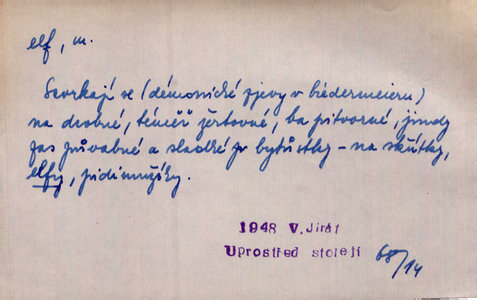 elf, m.
Scvrkají se (démonické zjevy v biedermeieru)
na drobné, téměř žertovné, ba pitvorné, jindy
zas půvabné a sladké bytůstky – na skřítky,
elfy, pidimužíky.
1948 V. Jirát
Uprostřed století 68/14